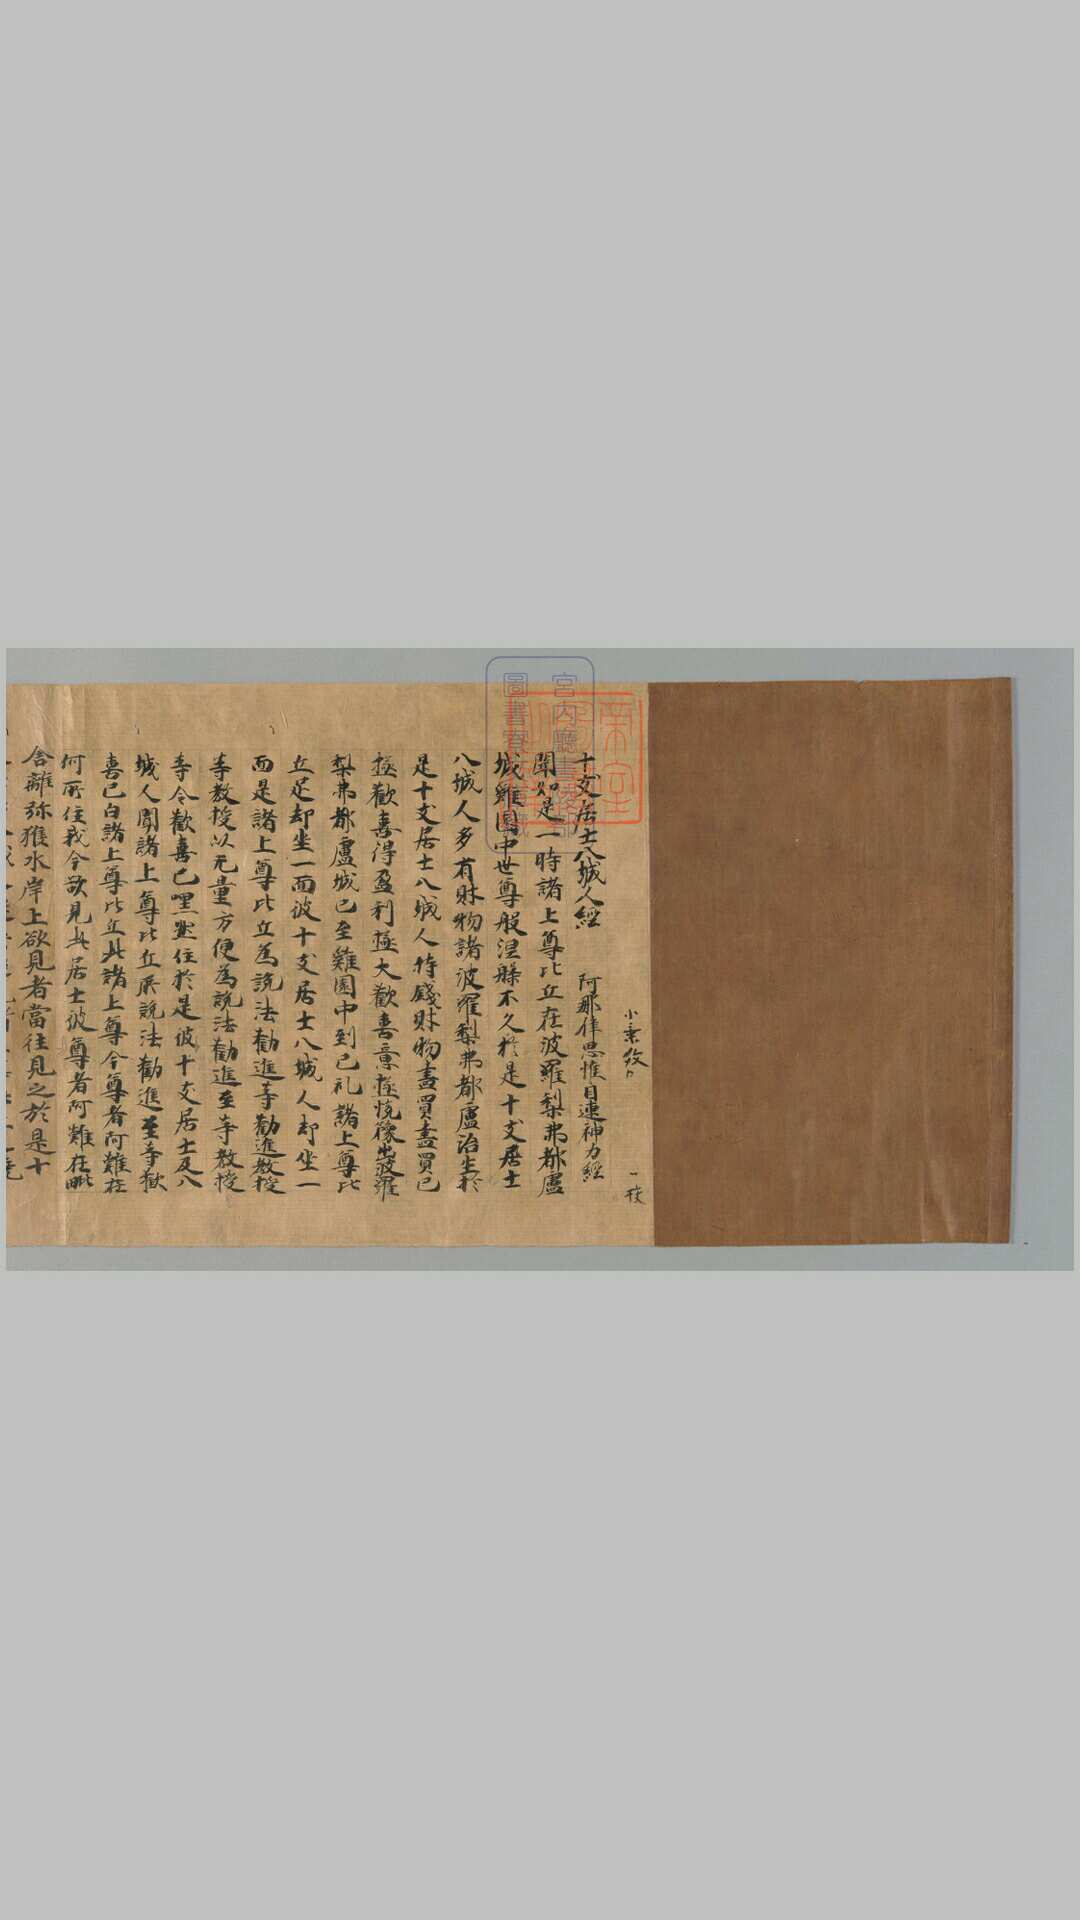 小乘
一校
十支居士八城人經 阿那律思惟目連神力經
聞如是一時諸上尊比丘在波羅梨弗都盧
城雞園中世尊般涅槃不久於是十支居士
八城人多有財物諸波羅梨弗都盧治生於
是十支居士八城人持錢財物盡買盡買已
極歡喜得盈利極大歡喜意極悅豫出波羅
梨弗都盧城已至雞園中到已礼諸上尊比
丘足却坐一面彼十支居士八城人却坐一
面是諸上尊比丘為說法勸進等勸進教授
等教授以无量方便為說法勸進至等教授
等令歡喜已嘿然住於是彼十支居士及八
城人聞諸上尊比丘所說法勸進至等歡
喜已白諸上尊比丘此諸上尊今尊者阿難在
何所住我今欲見此居士彼尊者阿難在毗
舍離弥猴水岸上欲見者當往見之於是十
帝室
宮内廳書陵部
圖書寮藏